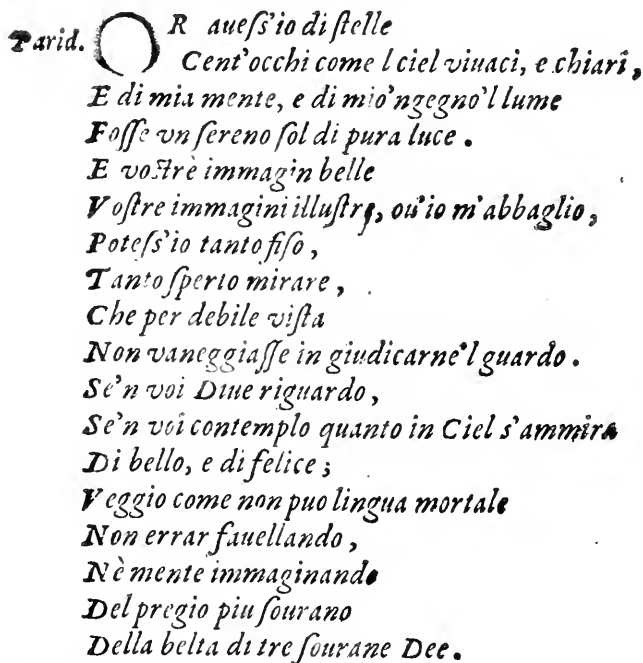 Parid. OR auess'io di stelle
Cent'occhi come l ciel viuaci, e chiari,
E di mia mente, e di mio'ngegno'l lume
Fosse vn sereno sol di pura luce.
E vostrè immagin belle
Vostre immagini illustre, ou'io m'abbaglio,
Potess'io tanto fiso,
Tanto sperto mirare,
Che per debile vista
Non vaneggiasse in giudicarne'l guardo.
Se'n voi Diue riguardo,
Se'n voi contemplo quanto in Ciel s'ammira
Di bello, e di felice;
Veggio come non puo lingua mortale
Non errar fauellando,
Nè mente immaginando
Del pregio piu sourano
Della belta di tre sourane Dee.